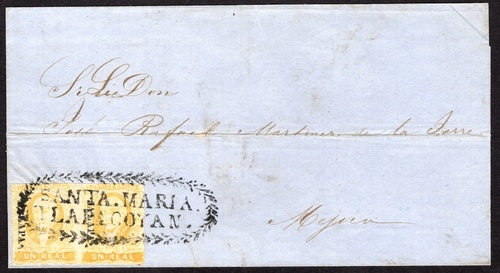 Sr Lic Don
José Rafael Martinez de la Torre
Mejico
SANTA. MARIA.
TLAPACOYAN.
UN REAL UN REAL